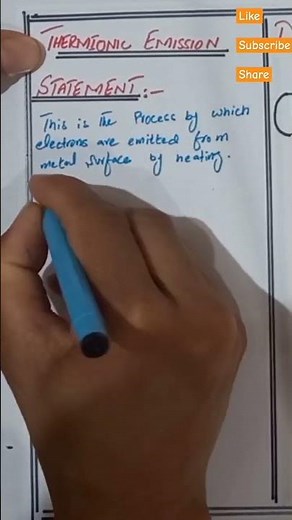 THERMIONIC EMISSION
STATEMENT:-
This is The Process by which
electrons are emitted from
metal surface by heating.
Like
Subscribe
Share